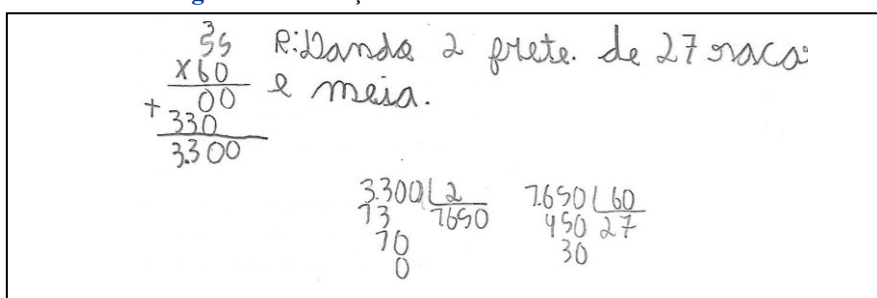 3
55
x60
00
+ 330
3.300
R: Dando 2 frete. de 27 saca
e meia.
3.300 2
13 1650
10
0
1.650 60
450 27
30